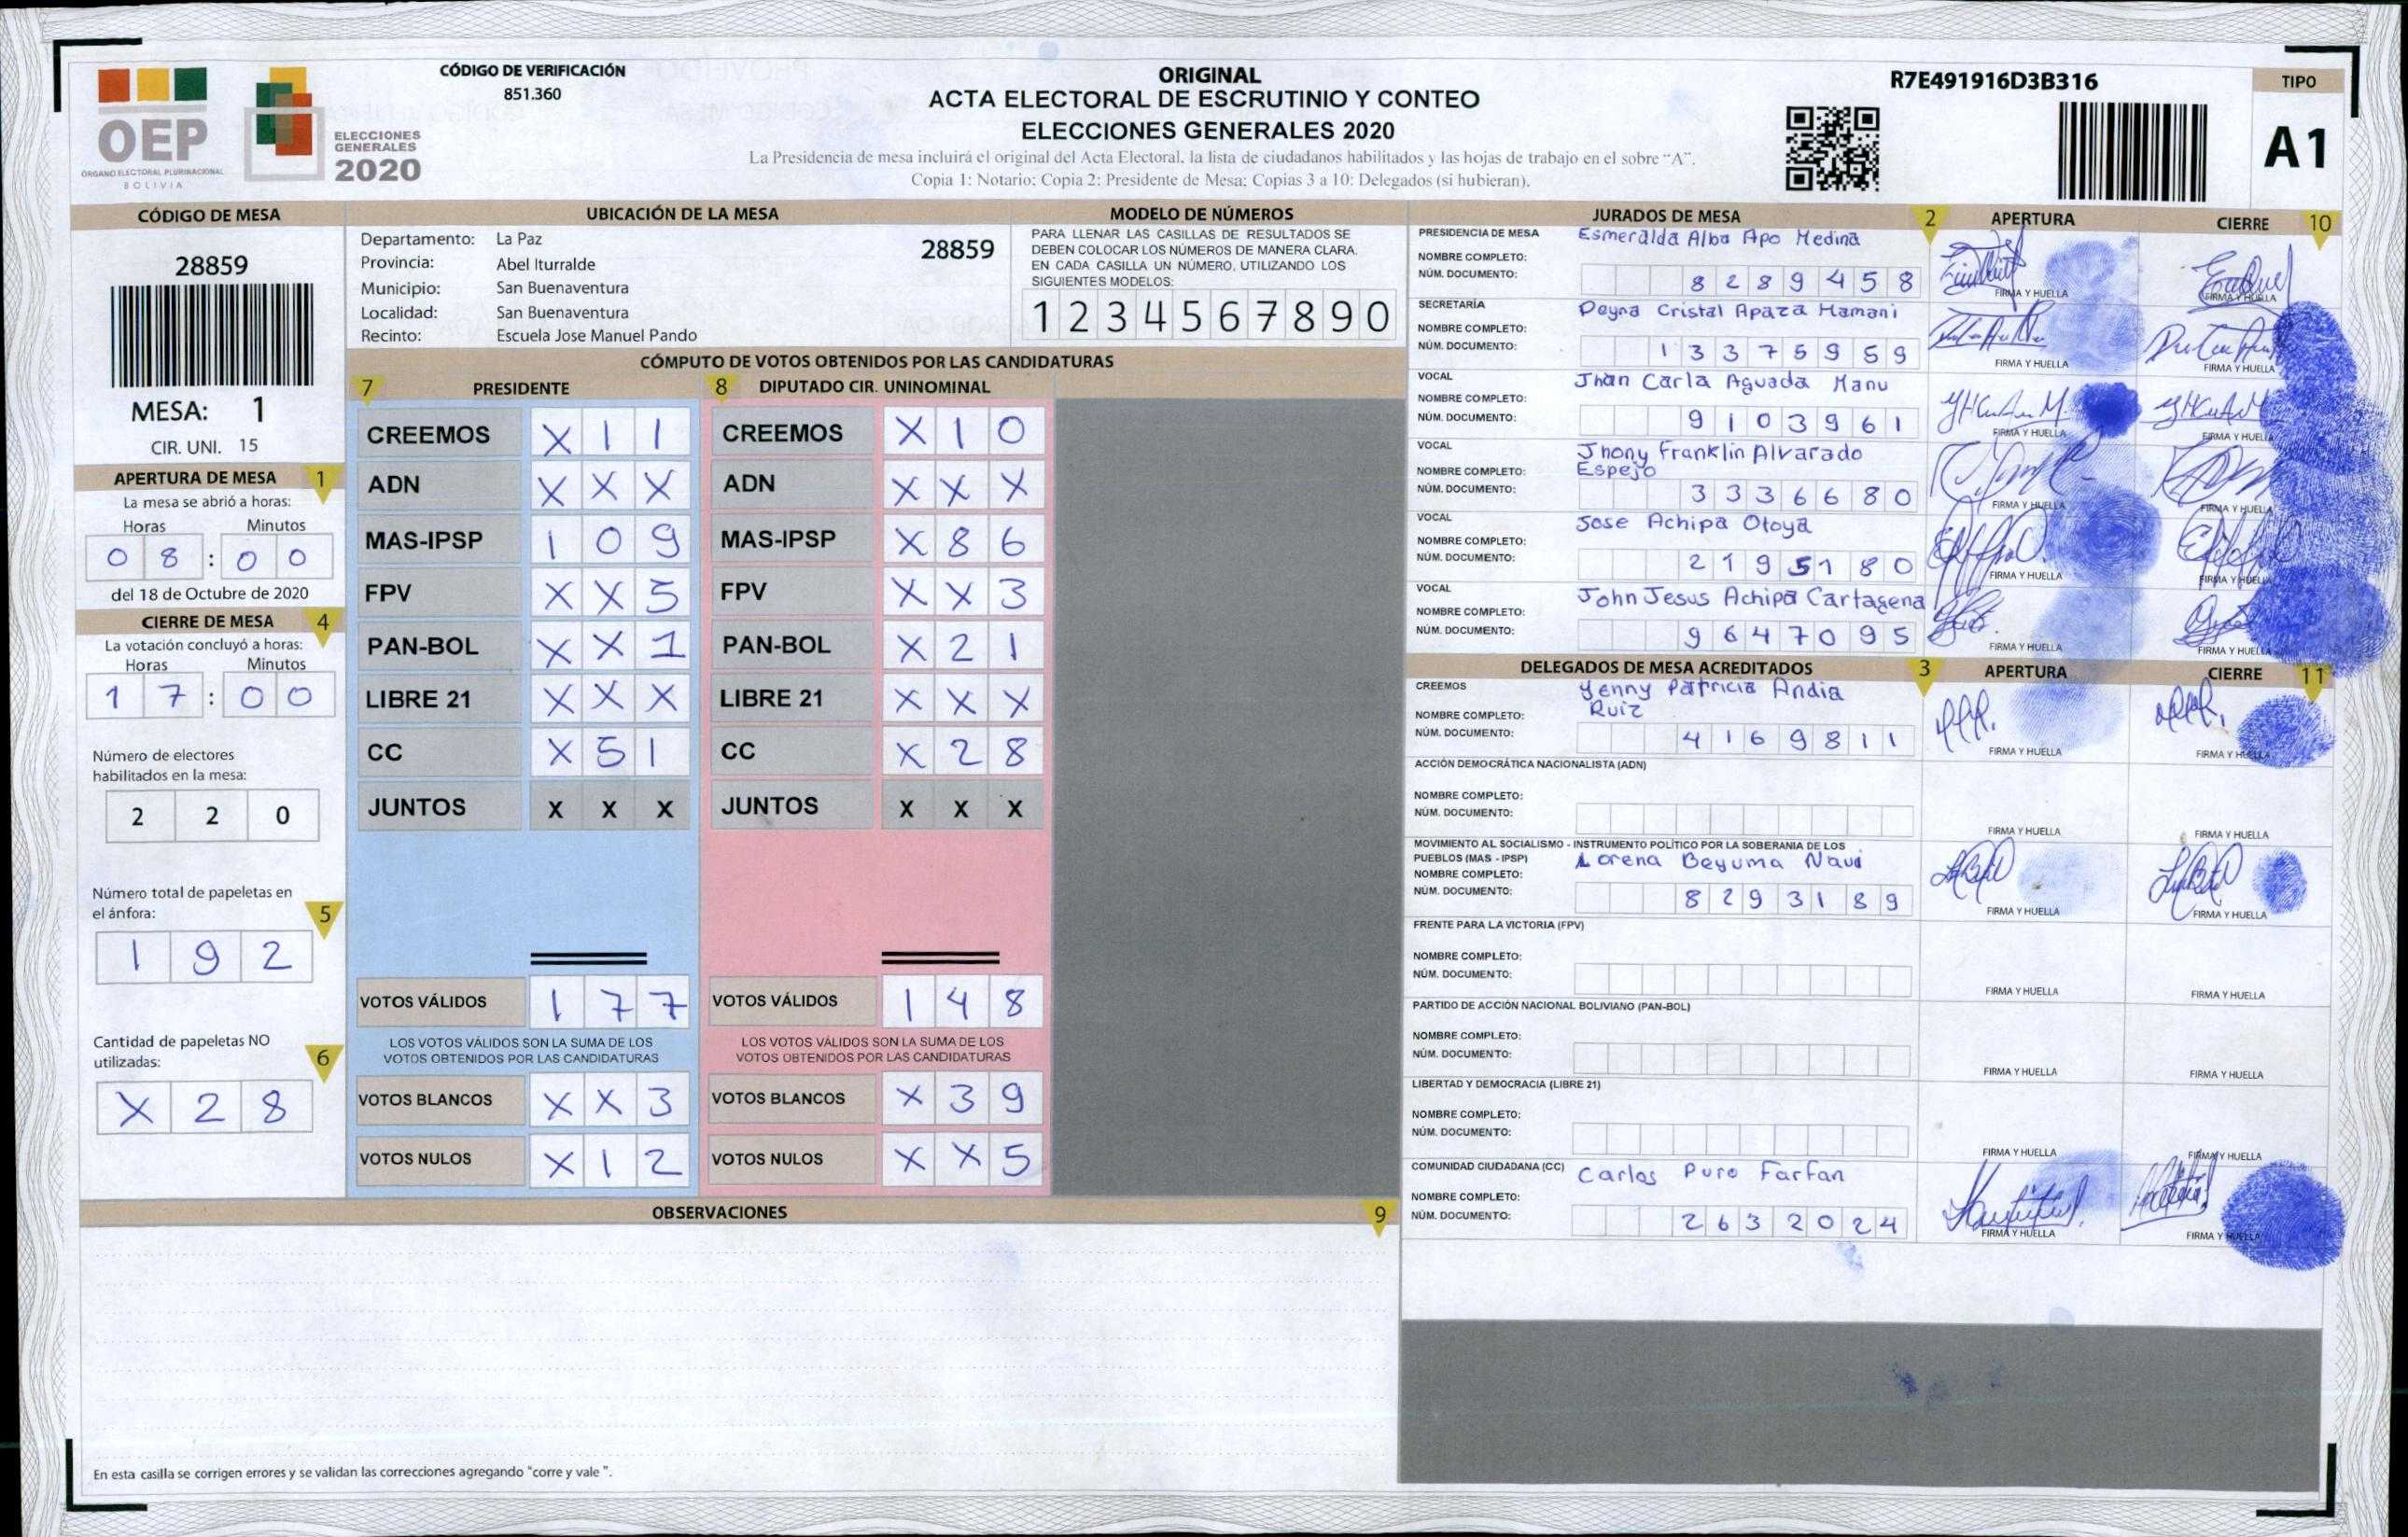 OEP
ÓRGANO ELECTORAL PLURINACIONAL
BOLIVIA
ELECCIONES
GENERALES
2020
CÓDIGO DE VERIFICACIÓN
851.360
ORIGINAL
ACTA ELECTORAL DE ESCRUTINIO Y CONTEO
ELECCIONES GENERALES 2020
La Presidencia de mesa incluirá el original del Acta Electoral, la lista de ciudadanos habilitados y las hojas de trabajo en el sobre "A".
Copia 1: Notario; Copia 2: Presidente de Mesa; Copias 3 a 10: Delegados (si hubieran).
R7E491916D3B316
TIPO
A1
CÓDIGO DE MESA
28859
MESA: 1
CIR. UNI. 15
APERTURA DE MESA 1
La mesa se abrió a horas:
Horas Minutos
0 8 : 0 0
del 18 de Octubre de 2020
CIERRE DE MESA 4
La votación concluyó a horas:
Horas Minutos
1 7 : 0 0
Número de electores
habilitados en la mesa:
2 2 0
Número total de papeletas en
el ánfora: 5
1 9 2
Cantidad de papeletas NO
utilizadas: 6
X 2 8
UBICACIÓN DE LA MESA
Departamento: La Paz
28859
Provincia: Abel Iturralde
Municipio: San Buenaventura
Localidad: San Buenaventura
Recinto: Escuela Jose Manuel Pando
MODELO DE NÚMEROS
PARA LLENAR LAS CASILLAS DE RESULTADOS SE
DEBEN COLOCAR LOS NÚMEROS DE MANERA CLARA.
EN CADA CASILLA UN NÚMERO, UTILIZANDO LOS
SIGUIENTES MODELOS:
1 2 3 4 5 6 7 8 9 0
CÓMPUTO DE VOTOS OBTENIDOS POR LAS CANDIDATURAS
7 PRESIDENTE
CREEMOS X 1 1
ADN X X X
MAS-IPSP 1 0 9
FPV X X 5
PAN-BOL X X 1
LIBRE 21 X X X
CC X 5 1
JUNTOS X X X
VOTOS VÁLIDOS 1 7 7
LOS VOTOS VÁLIDOS SON LA SUMA DE LOS
VOTOS OBTENIDOS POR LAS CANDIDATURAS
VOTOS BLANCOS X X 3
VOTOS NULOS X 1 2
8 DIPUTADO CIR. UNINOMINAL
CREEMOS X 1 0
ADN X X X
MAS-IPSP X 8 6
FPV X X 3
PAN-BOL X 2 1
LIBRE 21 X X X
CC X 2 8
JUNTOS X X X
VOTOS VÁLIDOS 1 4 8
LOS VOTOS VÁLIDOS SON LA SUMA DE LOS
VOTOS OBTENIDOS POR LAS CANDIDATURAS
VOTOS BLANCOS X 3 9
VOTOS NULOS X X 5
OBSERVACIONES 9
En esta casilla se corrigen errores y se validan las correcciones agregando "corre y vale ".
JURADOS DE MESA 2 APERTURA CIERRE 10
PRESIDENCIA DE MESA Esmeralda Alba Apo Medina
NOMBRE COMPLETO:
NÚM. DOCUMENTO: 8 2 8 9 4 5 8
FIRMA Y HUELLA FIRMA Y HUELLA
SECRETARÍA Deyna Cristal Apaza Mamani
NOMBRE COMPLETO:
NÚM. DOCUMENTO: 1 3 3 7 5 9 5 9
FIRMA Y HUELLA FIRMA Y HUELLA
VOCAL Jhan Carla Aguada Manu
NOMBRE COMPLETO:
NÚM. DOCUMENTO: 9 1 0 3 9 6 1
FIRMA Y HUELLA FIRMA Y HUELLA
VOCAL Jhony Franklin Alvarado
NOMBRE COMPLETO: Espejo
NÚM. DOCUMENTO: 3 3 3 6 6 8 0
FIRMA Y HUELLA FIRMA Y HUELLA
VOCAL Jose Achipa Otoya
NOMBRE COMPLETO:
NÚM. DOCUMENTO: 2 1 9 5 1 8 0
FIRMA Y HUELLA FIRMA Y HUELLA
VOCAL John Jesus Achipa Cartagena
NOMBRE COMPLETO:
NÚM. DOCUMENTO: 9 6 4 7 0 9 5
FIRMA Y HUELLA FIRMA Y HUELLA
DELEGADOS DE MESA ACREDITADOS 3 APERTURA CIERRE 11
CREEMOS Yenny Patricia Andia
NOMBRE COMPLETO: Ruiz
NÚM. DOCUMENTO: 4 1 6 9 8 1 1
FIRMA Y HUELLA FIRMA Y HUELLA
ACCIÓN DEMOCRÁTICA NACIONALISTA (ADN)
NOMBRE COMPLETO:
NÚM. DOCUMENTO:
FIRMA Y HUELLA FIRMA Y HUELLA
MOVIMIENTO AL SOCIALISMO - INSTRUMENTO POLÍTICO POR LA SOBERANIA DE LOS
PUEBLOS (MAS - IPSP) Lorena Beyuma Navi
NOMBRE COMPLETO:
NÚM. DOCUMENTO: 8 2 9 3 1 8 9
FIRMA Y HUELLA FIRMA Y HUELLA
FRENTE PARA LA VICTORIA (FPV)
NOMBRE COMPLETO:
NÚM. DOCUMENTO:
FIRMA Y HUELLA FIRMA Y HUELLA
PARTIDO DE ACCIÓN NACIONAL BOLIVIANO (PAN-BOL)
NOMBRE COMPLETO:
NÚM. DOCUMENTO:
FIRMA Y HUELLA FIRMA Y HUELLA
LIBERTAD Y DEMOCRACIA (LIBRE 21)
NOMBRE COMPLETO:
NÚM. DOCUMENTO:
FIRMA Y HUELLA FIRMA Y HUELLA
COMUNIDAD CIUDADANA (CC) Carlos Puro Farfan
NOMBRE COMPLETO:
NÚM. DOCUMENTO: 2 6 3 2 0 2 4
FIRMA Y HUELLA FIRMA Y HUELLA